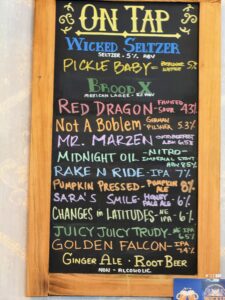 ON TAP
WICKED SELTZER
SELTZER · 5% ABV
PICKLE BABY - BERLINER WEISSE 5%
BROOD X
MEXICAN LAGER -
RED DRAGON - FRUITED SOUR 4.3%
NOT A BOBLEM - GERMAN PILSNER 5.3%
MR. MARZEN - OKTOBERFEST ABV 6.5%
MIDNIGHT OIL - NITRO - IMPERIAL STOUT ABV 8.5%
RAKE N RIDE - IPA 7%
PUMPKIN PRESSED - PUMPKIN ALE 8%
SARA'S SMILE - HONEY PALE ALE · 6%
CHANGES IN LATITUDES - NE IPA 6%
JUICY JUICY TRUDY - NE IPA 6.5%
GOLDEN FALCON - IPA 7.4%
GINGER ALE · ROOT BEER
NON - ALCOHOLIC